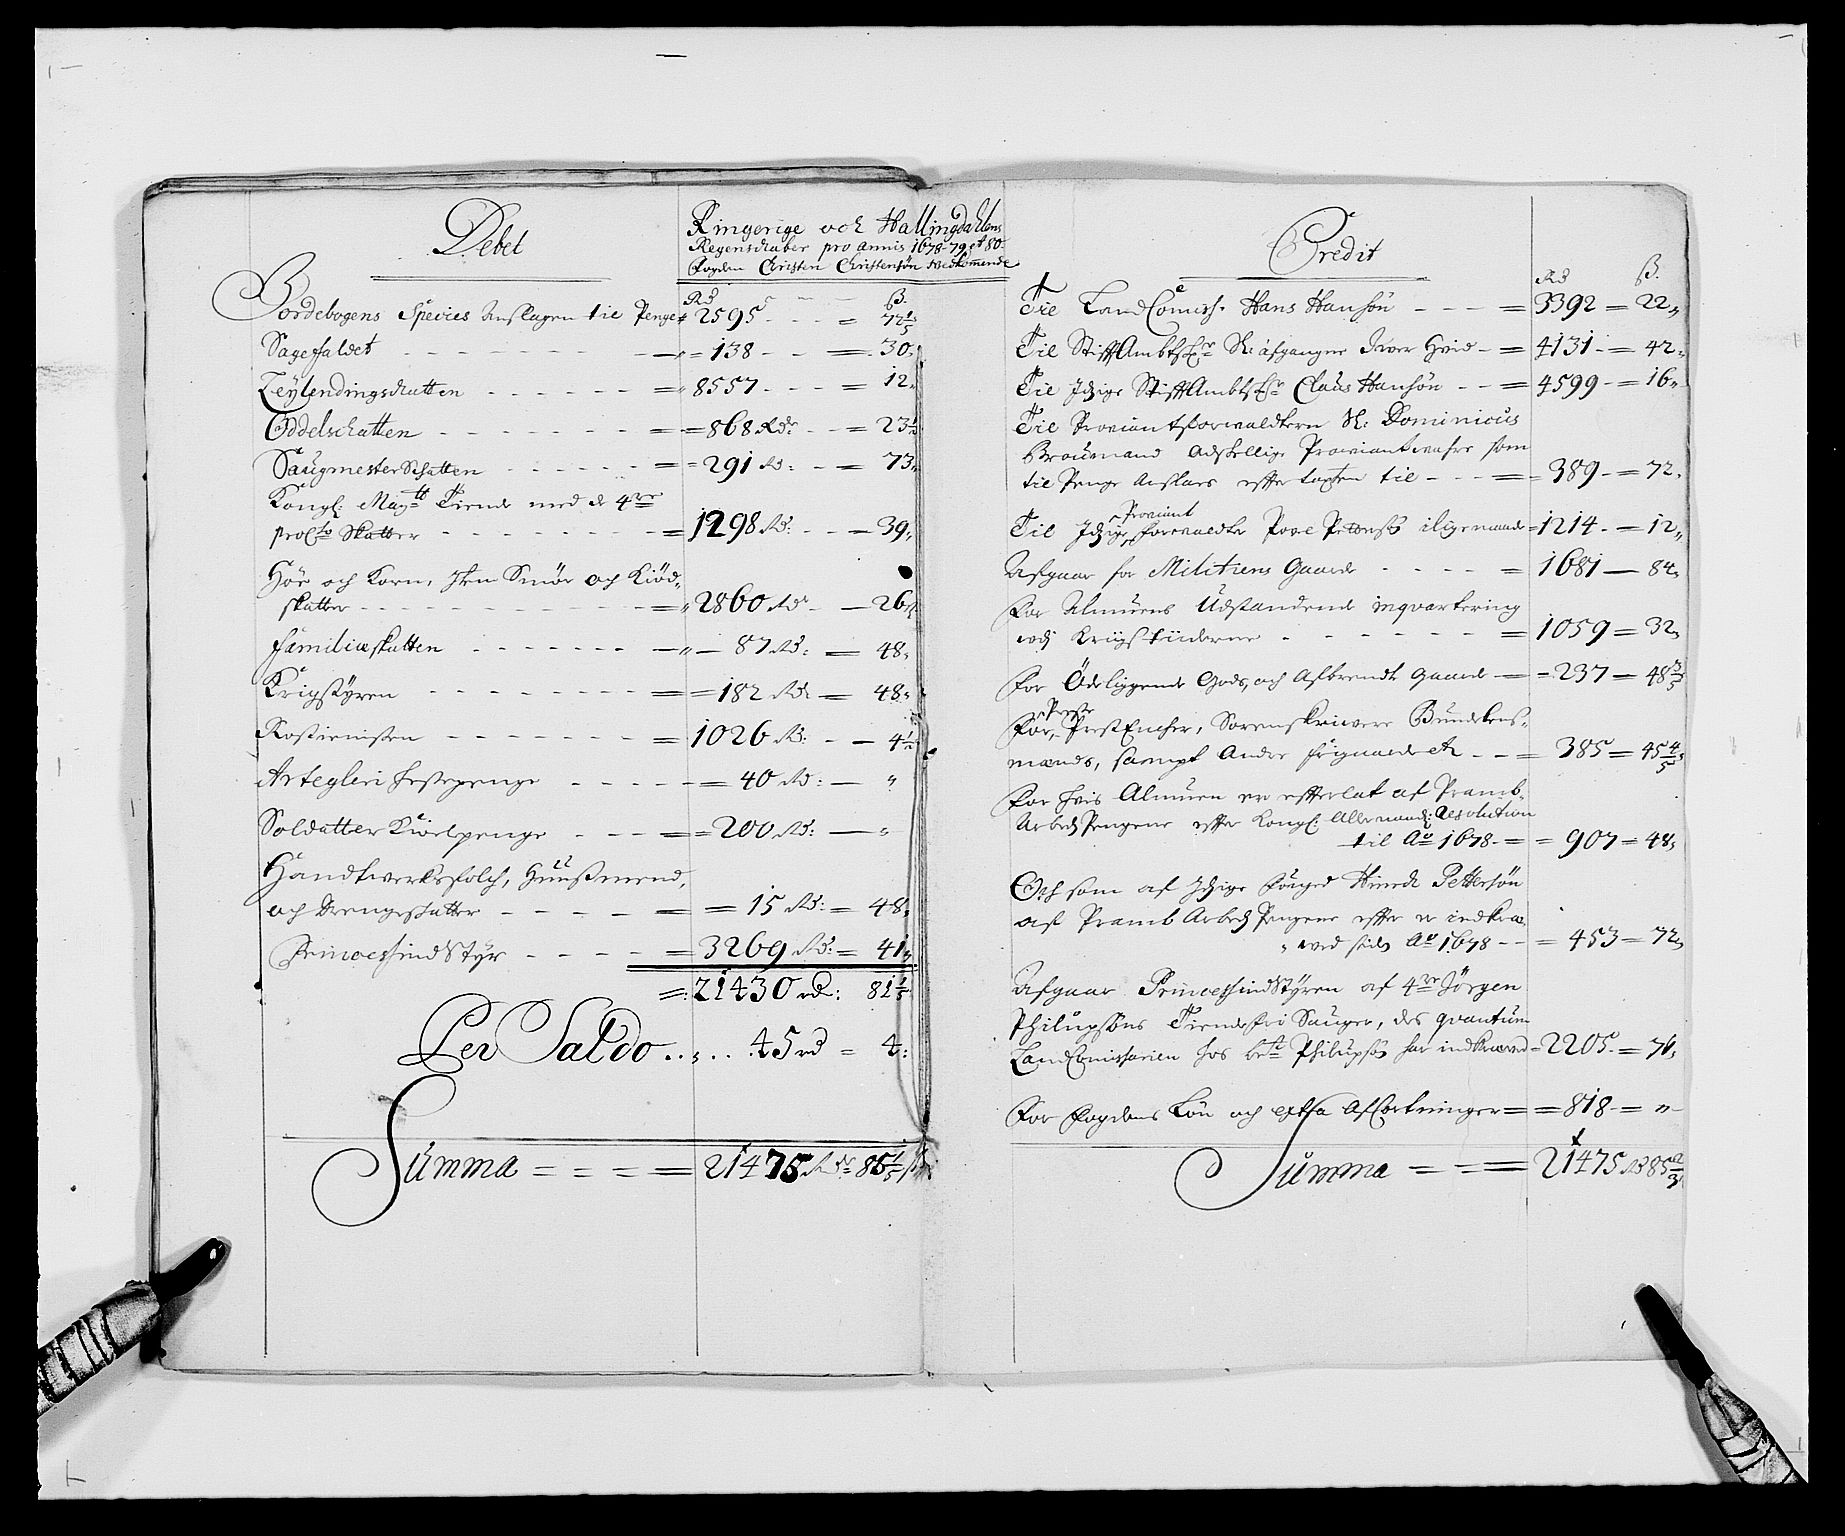 Debet
Ringerige och Hallingdahlens
Regenschaber pro annis 1678-79 et 80
Fogden Christen Christensøn vedkommende
Rd ß.
Jordebogens Species Anslagen til Penge 2595 - - - = 72½
Sagefaldet - - - - - - 138 - - = 30
Leylendingschatten - - - - - - = 8557 - - - = 12
Oddelschatten - - - - - = 868 Rdr - - = 23½
Saugmester Schatten - - - - - = 291 Rd: - = 73
Kongl: Maytt Tiende med de 4re
Skatter - - - - - - = 1298 Rd: - - = 39
Höe och Korn, Smör och Kiöd-
skatter - - - - - - = 2860 Rdr - = 26
Familieskatten - - - - - - = 87 Rd: = 48
Krigstyren - - - - - - = 182 Rdr = 48
Rostienisten - - - - - - = 1026 Rd: - - 4½
Artegleri hestepenge - - - - = 40 Rd: = "
Soldatter Kioelpenge - - - = 200 Rd: = "
Handtverksfolch, Huusmend,
och Drengeskatter - - - - = 15 Rd: = 48
Princessindstyr - - - - = 3269 Rd: = 41
= 21430 rd: 81⅕
Per Saldo . . , . . 45 rd = 4:
Summa = = = = 21475 Rdr 85⅕
Credit
Rd ß.
Til LandComiss. Hans Hansøn - - - = 3392 = 22
Til StifftAmbts Hr Sl: afgangne Ower Hvid - = 4131 - = 42
Til Itzige StifftAmbts Hr Claus Hansøn - - = 4599 - = 16
Til Proviantforwaldtern Sl: Dominicus
adskellige Proviantwahre som
til Penge Anslaes effter taxten til - - - = 389 - = 72
Proviant
Til Itzige forwaldter Povel Petterss. iligemaade = 1214 - = 12
Afgaar for Militiens Gaarde - - - - = 1681 — 84
For Almuens Udstandende inqvartering
wdj Krigstiiderne - - - - - - = 1059 = 32
For Ödeliggende Gods, och Afbrendte gaarde = = 237 = 48⅗
Preste
For PrestEncher, Sorenskriwere Bundelens-
mænds, sampt Andre friigaarde etc - - = 385 = 45⅘
For hvis Almuen er efterlat af Pramb-
Arbedz Pengene effter Kongl: Allernaadi: Resolution
til Ao 1678 - = = 907 = 48
Och som af Itzige Foeged Hinrich Pettersøn
af Pramb Arbedz Pengene effter er indkræ-
wed siden Ao 1678 - - = 453 = 72
Afgaar Princessindstyren af 4re Jörgen
Philupsøns Tiendefrie Sauger, des qvantum
LandComissarien hos bete Philupsøn har indkræwed = 2205 - = 74
For Fogdens Løn och extra Afkortninger = = 818 - = "
Summa = = = 21475 Rd 85⅔